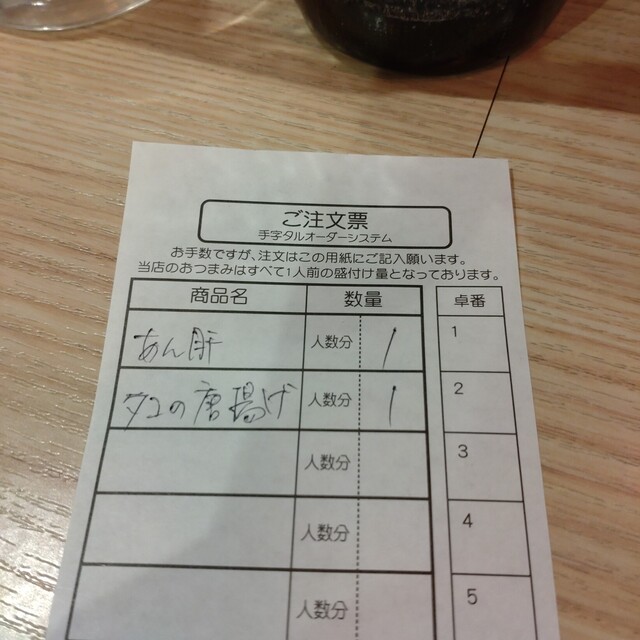 ご注文票
手字タルオーダーシステム
お手数ですが、注文はこの用紙にご記入願います。
当店のおつまみはすべて1人前の盛付け量となっております。
商品名 数量 卓番
あん肝 人数分 1 1
タコの唐揚げ 人数分 1 2
人数分 3
人数分 4
人数分 5